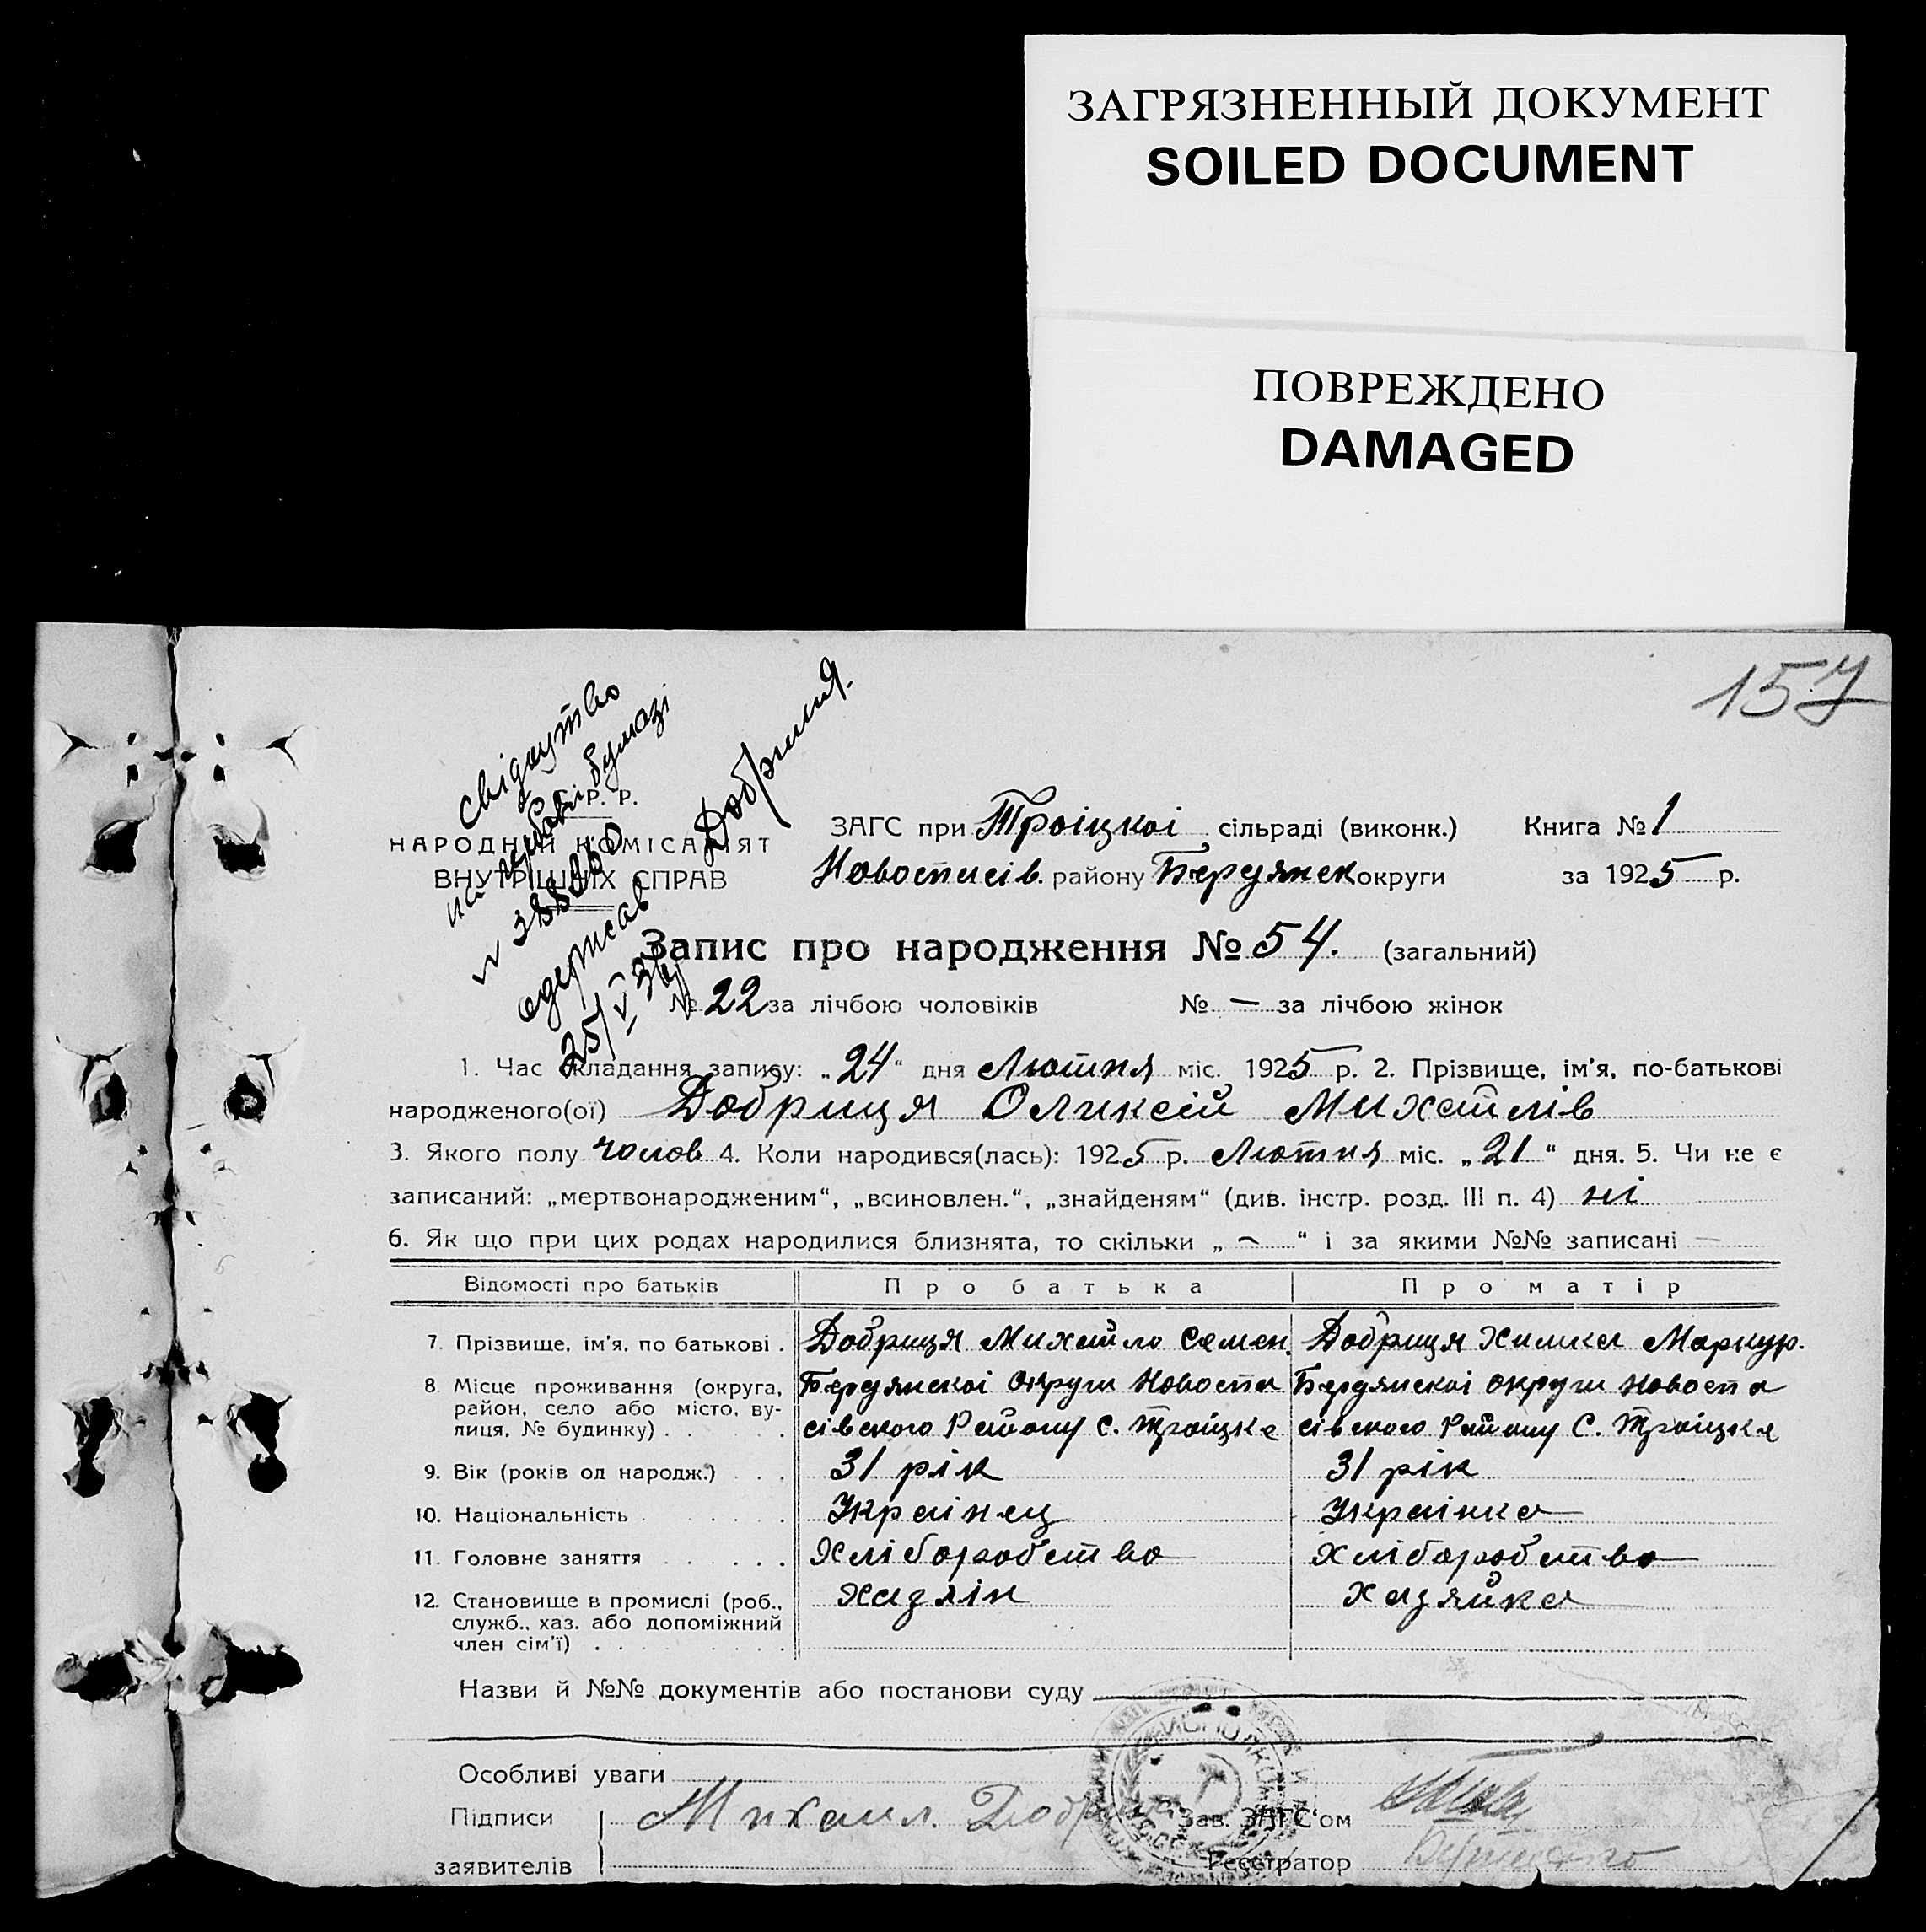 ЗАГРЯЗНЕННЫЙ ДОКУМЕНТ
SOILED DOCUMENT
ПОВРЕЖДЕНО
DAMAGED
157
свідоцтво
на гербовій бумазі
N 388260
одержав
25/V 36
Добриця
Р. Р.
НАРОДНИЙ КОМІСАРІЯТ
ВНУТРІШНІХ СПРАВ
ЗАГС при Троіцкоі сільраді (виконк.) Книга № 1
Новоспасів. району Бердянск округи за 1925 р.
Запис про народження № 54. (загальний)
№ 22 за лічбою чоловіків № — за лічбою жінок
1. Час складання запису: „24“ дня Лютня міс. 1925 р. 2. Прізвище, ім'я, по-батькові
народженого(ої) Добриця Олексій Михайлів
3. Якого полу чолов 4. Коли народився(лась): 1925 р. Лютня міс. „21“ дня. 5. Чи не є
записаний: „мертвонародженим“, „всиновлен.“, „знайденям“ (див. інстр. розд. III п. 4) ні
6. Як що при цих родах народилися близнята, то скільки „—“ і за якими №№ записані —
Відомості про батьків Про батька Про матір
7. Прізвище, ім'я, по батькові . Добриця Михайло Семен. Добриця Химка Маркур.
8. Місце проживання (округа, район, село або місто, вулиця, № будинку) . . . . Бердянскоі округи Новоспа Бердянскоі округи Новоспа
сівского Району С. Троіцке сівского Району С. Троіцке
9. Вік (років од народж.) . . . 31 рік 31 рік
10. Національність . . . . . . Украінец Украінка
11. Головне заняття . . . . . . Хліборобство Хліборобство
12. Становище в промислі (роб., служб., хаз. або допоміжний член сім'ї) . . . . . . . . . Хазяін Хазяйка
Назви й №№ документів або постанови суду
Особливі уваги
Підписи Михаил. Добриця Зав. ЗАГС'ом
заявителів Реєстратор